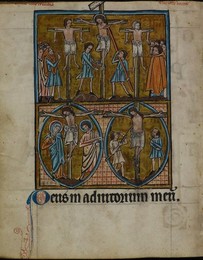 Deus in adiutorium meū.